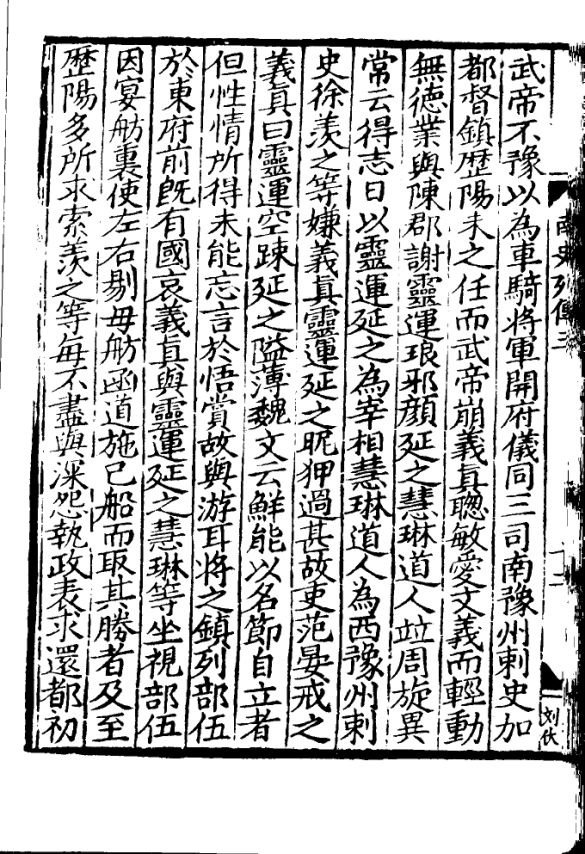 武帝不豫以為車騎將軍開府儀同三司南豫州刺史加
都督鎮歷陽未之任而武帝崩義真聰敏愛文義而輕動
無德業與陳郡謝靈運琅邪顔延之慧琳道人竝周旋異
常云得志日以靈運延之為宰相慧琳道人為西豫州刺
史徐羨之等嫌義真靈運延之昵狎過甚故吏范晏戒之
義真曰靈運空踈延之隘薄魏文云鮮能以名節自立者
但性情所得未能忘言於悟賞故與游耳將之鎮列部伍
於東府前既有國哀義真與靈運延之慧琳等坐視部伍
因宴舫裏使左右剔母舫函道施己船而取其勝者及至
歷陽多所求索羨之等每不盡與深怨執政表求還都初